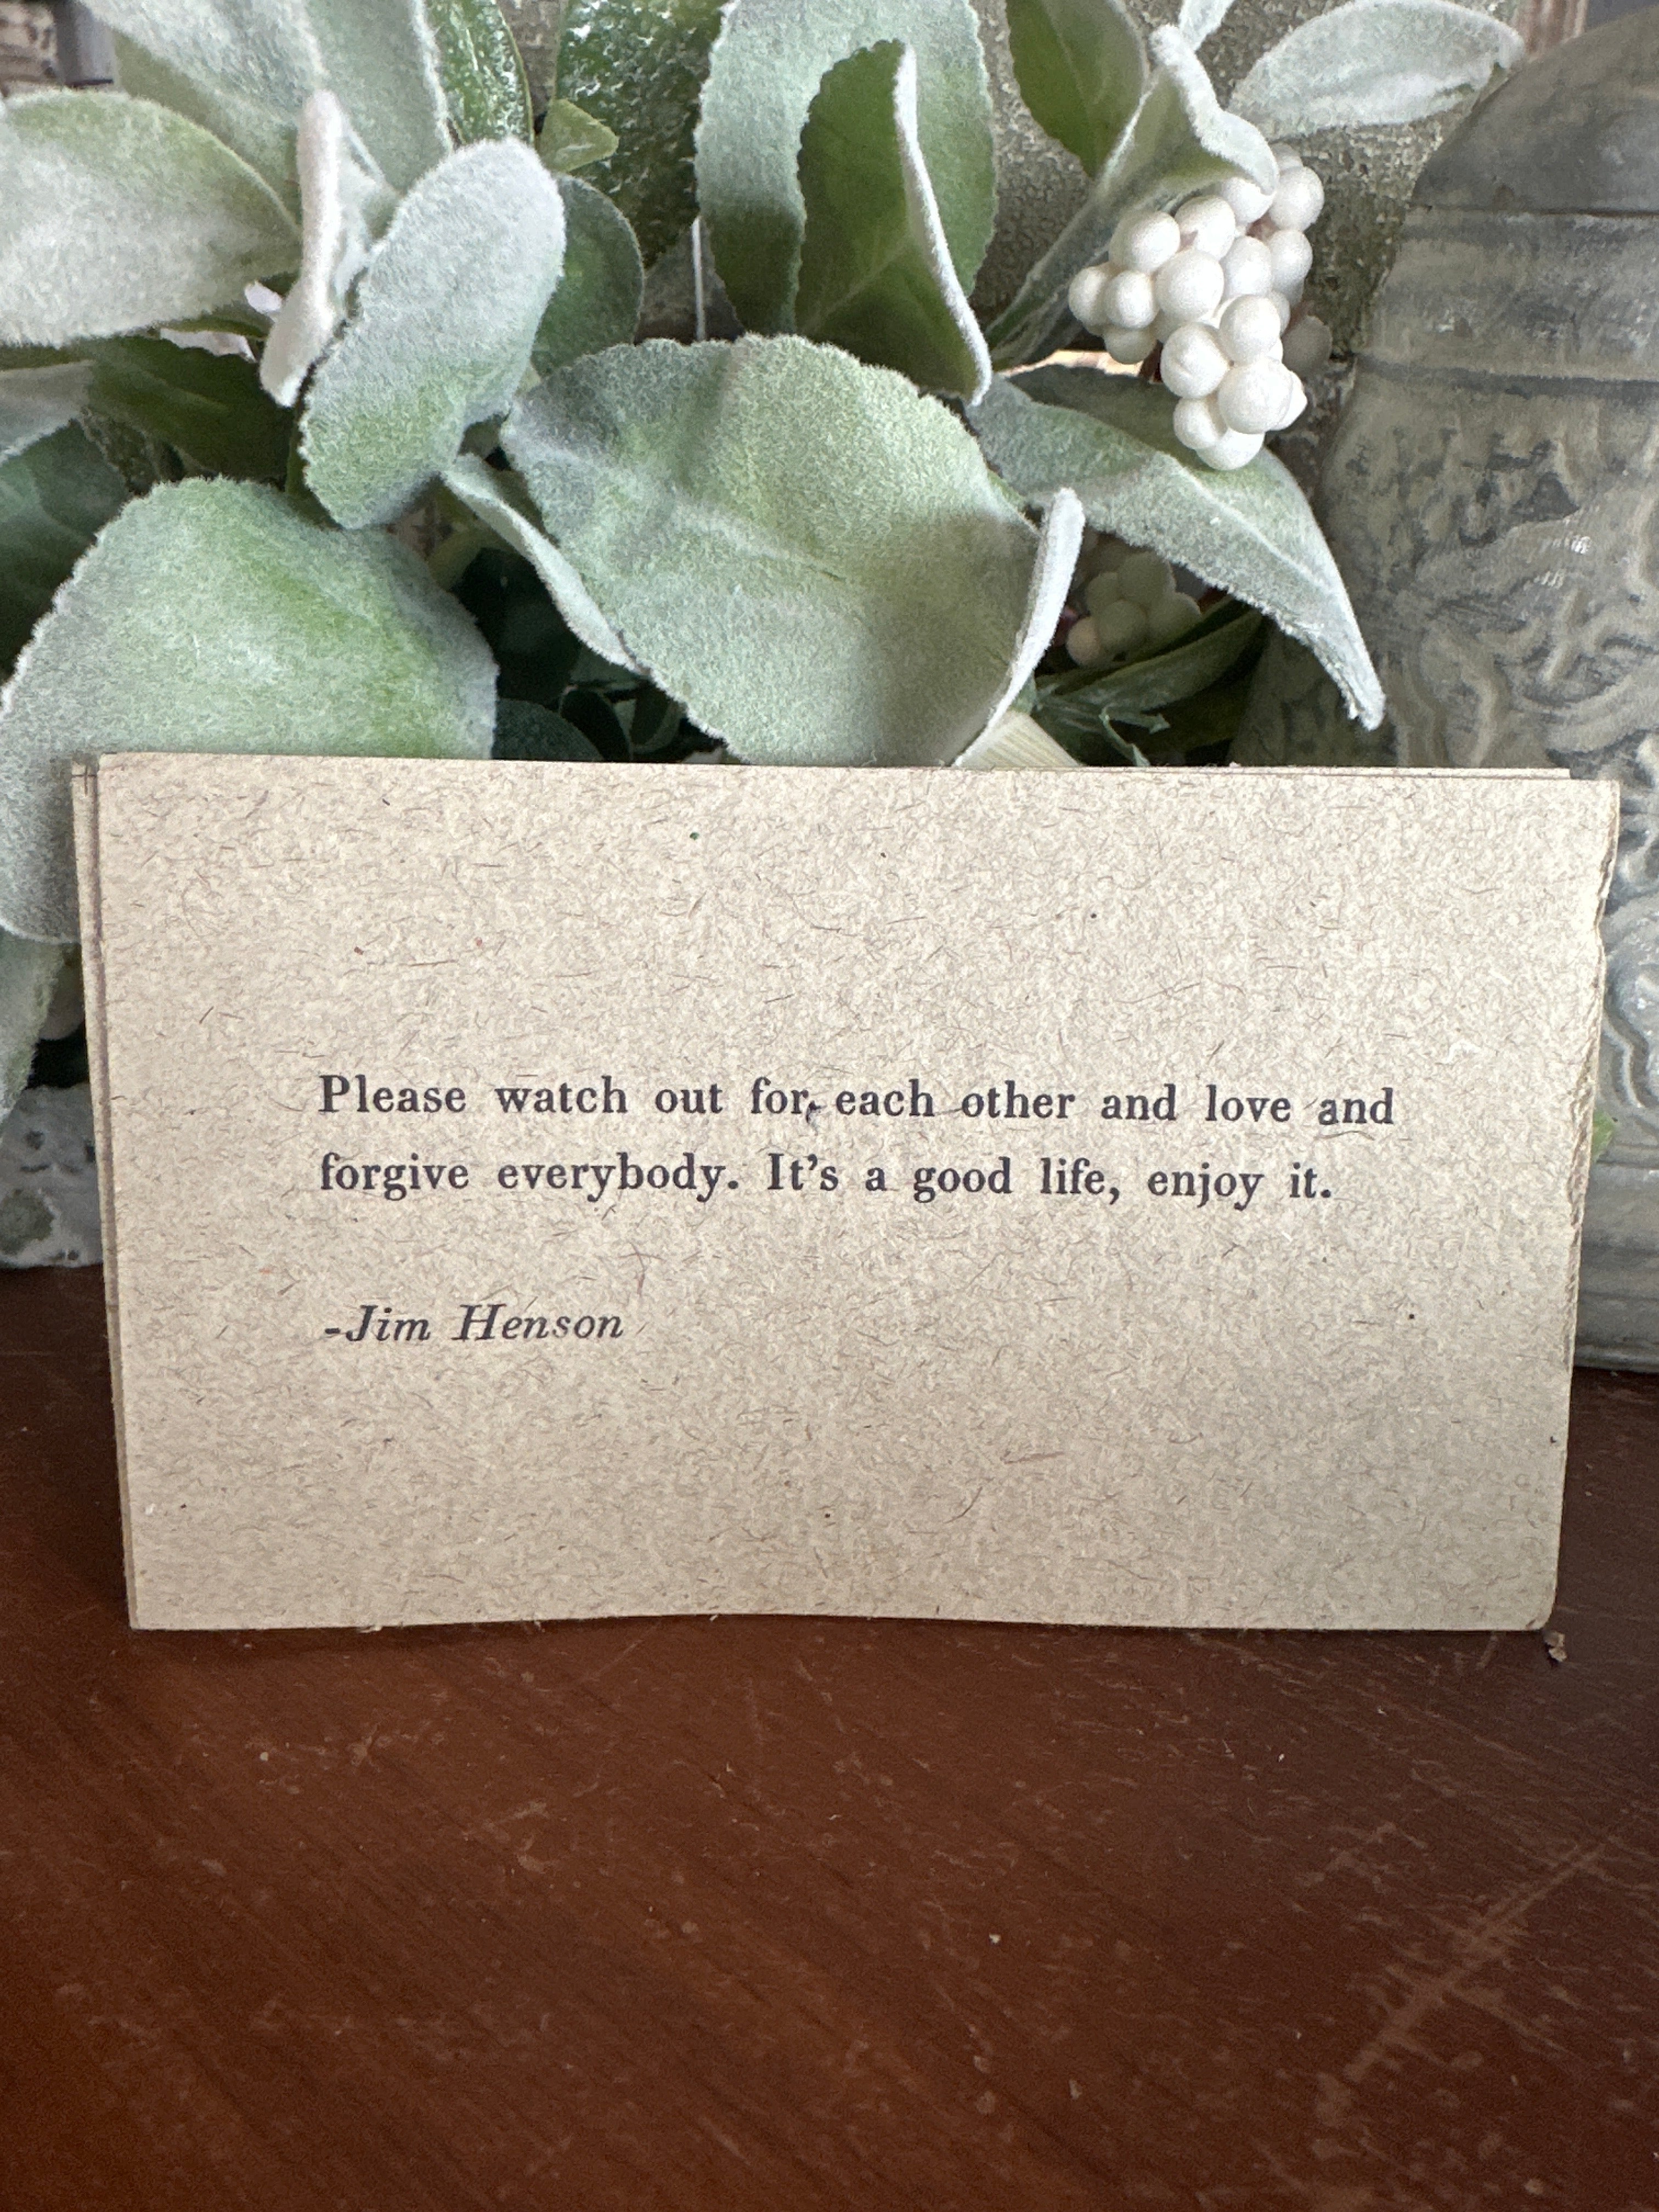 Please watch out for each other and love and
forgive everybody. It's a good life, enjoy it.
-Jim Henson